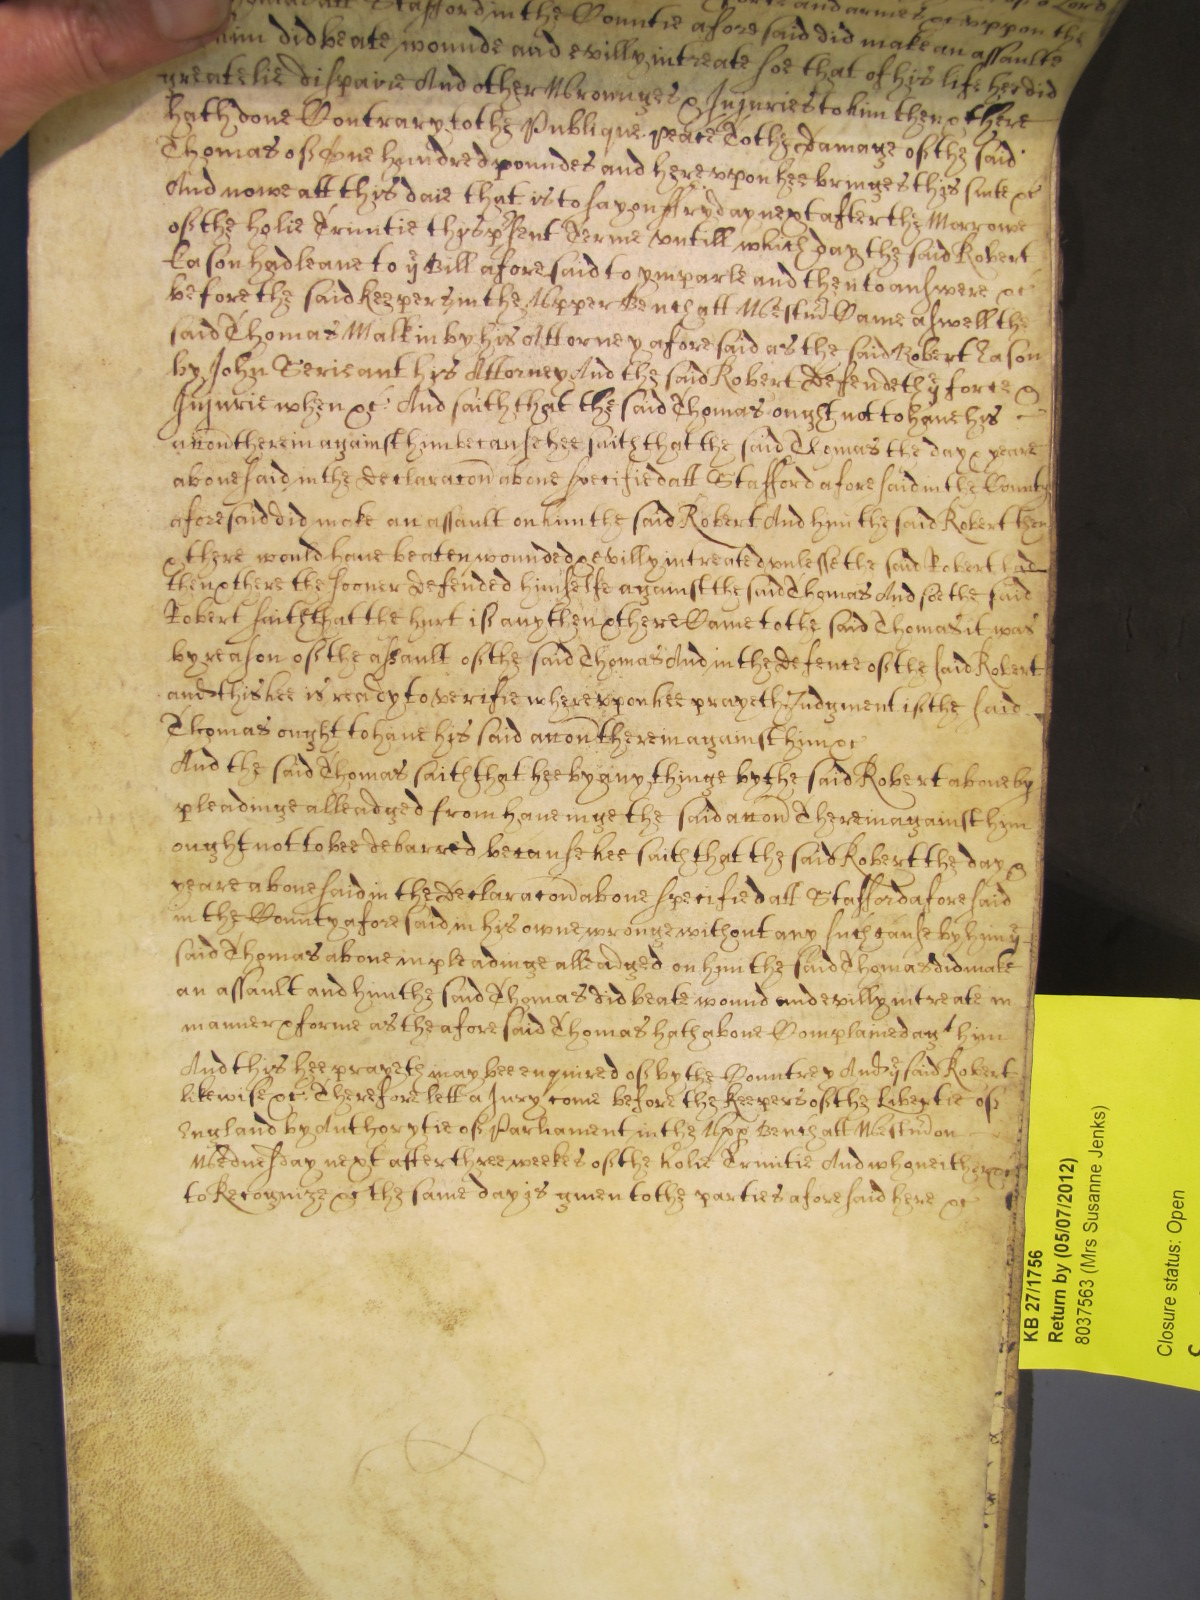 Stafford in the Countie aforesaid did make an assaulte
him did beate wounde and evilly intreate soe that of his life hee did
greatelie dispaire And other Wrounges & Injuries to him then & there
hath done Contrary to the Publique peace To the damage of the said
Thomas of One hundred poundes and hereupon hee bringes this suite &c
And nowe att this daie that is to say on ffryday next after the Morrowe
of the holie Trinitie this p'sent Terme untill which day the said Robert
Eason had leave to ye Bill aforesaid to ymparle and then to answere &c
before the said keepers in the Upper Bench att Westm' Came aswell the
said Thomas Malkin by his Attorney aforesaid as the said Robert Eason
by John Serieant his Attorney And the said Robert defendeth ye force &
Injurie when &c And saith that the said Thomas ought not to have his
accon therein against him because hee saith that the said Thomas the day & yeare
abovesaid in the declaracon above specified att Stafford aforesaid in the County
aforesaid did make an assault on him the said Robert And him the said Robert then
& there would have beaten wounded & evilly intreated unlesse the said Robert had
then & there the sooner defended himselfe against the said Thomas And soe the said
Robert saith that the hurt if any then & there Came to the said Thomas it was
by reason of the assault of the said Thomas And in the defence of the said Robert
and this hee is ready to verifie whereupon hee prayeth Judgment if the said
Thomas ought to have his said accon therein against him &c
And the said Thomas saith that hee by any thinge by the said Robert above by
pleadinge alleadged from haveinge the said accon therein against him
ought not to bee debarred because hee saith that the said Robert the day &
yeare abovesaid in the declaracon above specified att Stafford aforesaid
in the County aforesaid in his owne wronge without any such cause by him ye
said Thomas above in pleadinge alleadged on him the said Thomas did make
an assault and him the said Thomas did beate wound and evilly intreate in
manner & forme as the aforesaid Thomas hath above Complained agt him
And this hee prayeth may bee enquired of by the Countrey And ye said Robert
likewise &c Therefore lett a Jury come before the Keepers of the Libertie of
England by Authorytie of Parliament in the Upp Bench att Westm' on
Wednesday next after three weekes of the holie Trinitie And who neither &c
to Recognize &c the same day is given to the parties aforesaid here &c
KB 27/1756
Return by (05/07/2012)
8037563 (Mrs Susanne Jenks)
Closure status: Open